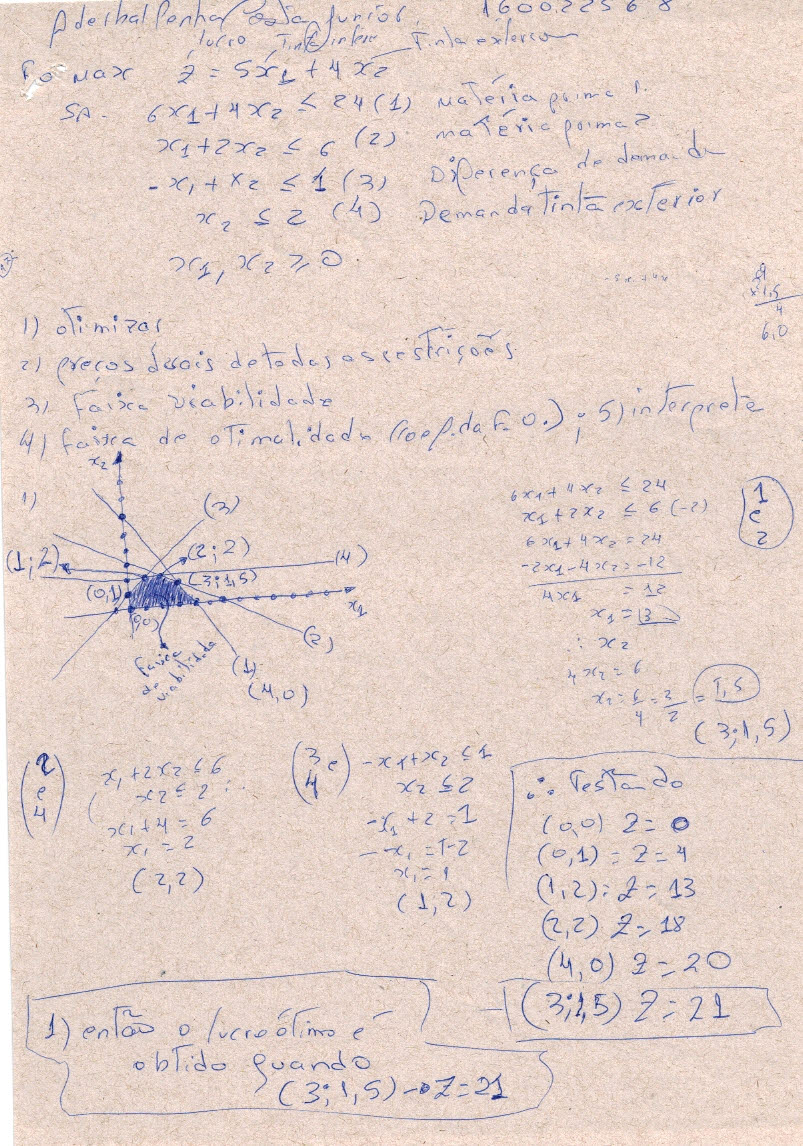 Aderbal Penha Costa Junior, 16002256 8
lucro Tinta interi Tinta exterior
Fo Max Z = 5x1 + 4x2
SA. 6x1 + 4x2 ≤ 24 (1) matéria prima 1.
x1 + 2x2 ≤ 6 (2) matéria prima 2
-x1 + x2 ≤ 1 (3) Diferença de demanda
x2 ≤ 2 (4) Demanda Tinta exterior
x1, x2 ≥ 0.
x 1,5
6,0
1) otimizar
2) preços duais de todas as restrições
3) Faixa viabilidade
4) faixa de otimalidade (coef. da F. O.) ; 5) interprete
1)
x2
(3)
(1;2)
(2;2)
(4)
(0,1)
(3;1,5)
x1
(2)
faixa
de
viabilidade
(1)
(4,0)
6x1 + 4x2 ≤ 24
x1 + 2x2 ≤ 6 (-2)
6x1 + 4x2 = 24
-2x1 - 4x2 = -12
4x1 = 12
x1 = 3
∴ x2
4x2 = 6
x2 = 6/4 = 3/2 = 1,5
(3;1,5)
1
e
2
2
e
4
x1 + 2x2 ≤ 6
x2 ≤ 2 ∴
x1 + 4 = 6
x1 = 2
(2,2)
3 e
4
-x1 + x2 ≤ 1
x2 ≤ 2
-x1 + 2 = 1
-x1 = 1-2
x1 = 1
(1,2)
∴ Testando
(0,0) Z = 0
(0,1) = Z = 4
(1,2): Z = 13
(2,2) Z = 18
(4,0) Z = 20
(3;1,5) Z = 21
1) então o lucro ótimo é
obtido quando
(3;1,5) → Z = 21